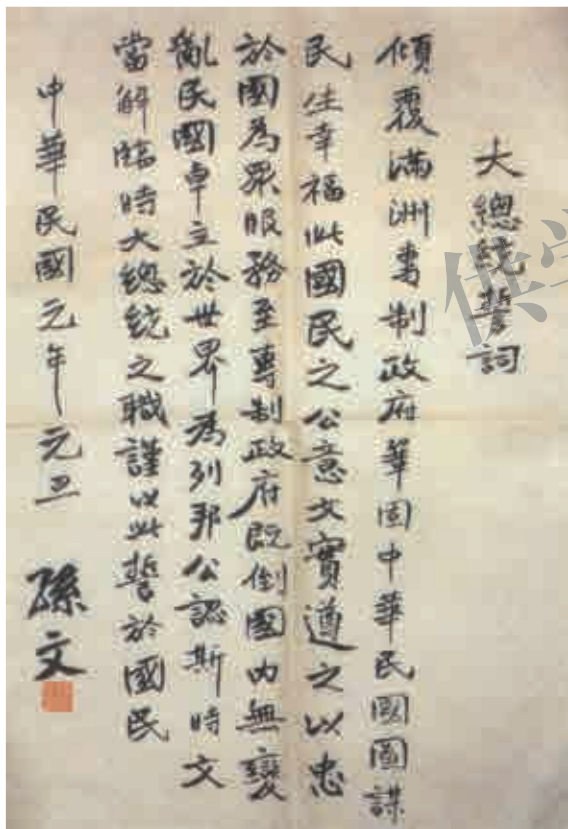 大總統誓詞
傾覆滿洲專制政府鞏固中華民國圖謀
民生幸福此國民之公意文實遵之以忠
於國為眾服務至專制政府既倒國內無變
亂民國卓立於世界為列邦公認斯時文
當解臨時大總統之職謹以此誓於國民
中華民國元年元旦 孫文
供學